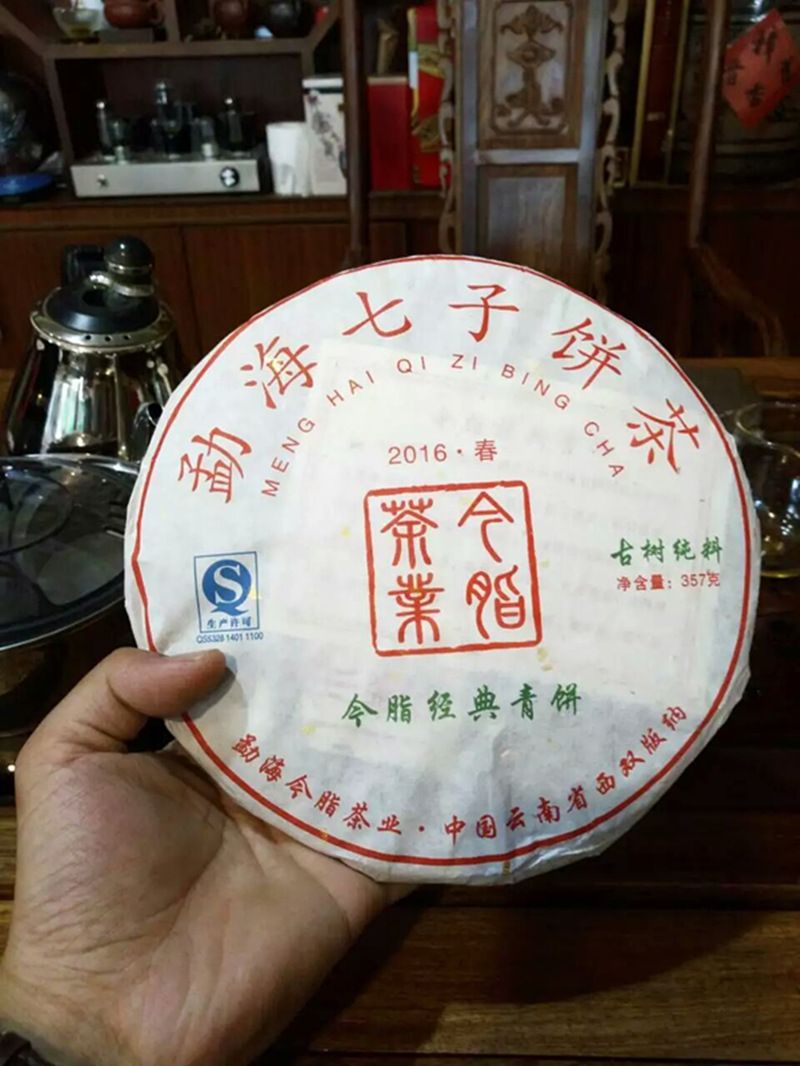 勐海七子饼茶
MENG HAI QI ZI BING CHA
2016·春
今脂
茶業
古树纯料
净含量：357克
生产许可
QS5328 1401 1100
今脂经典青饼
勐海今脂茶业·中国云南省西双版纳